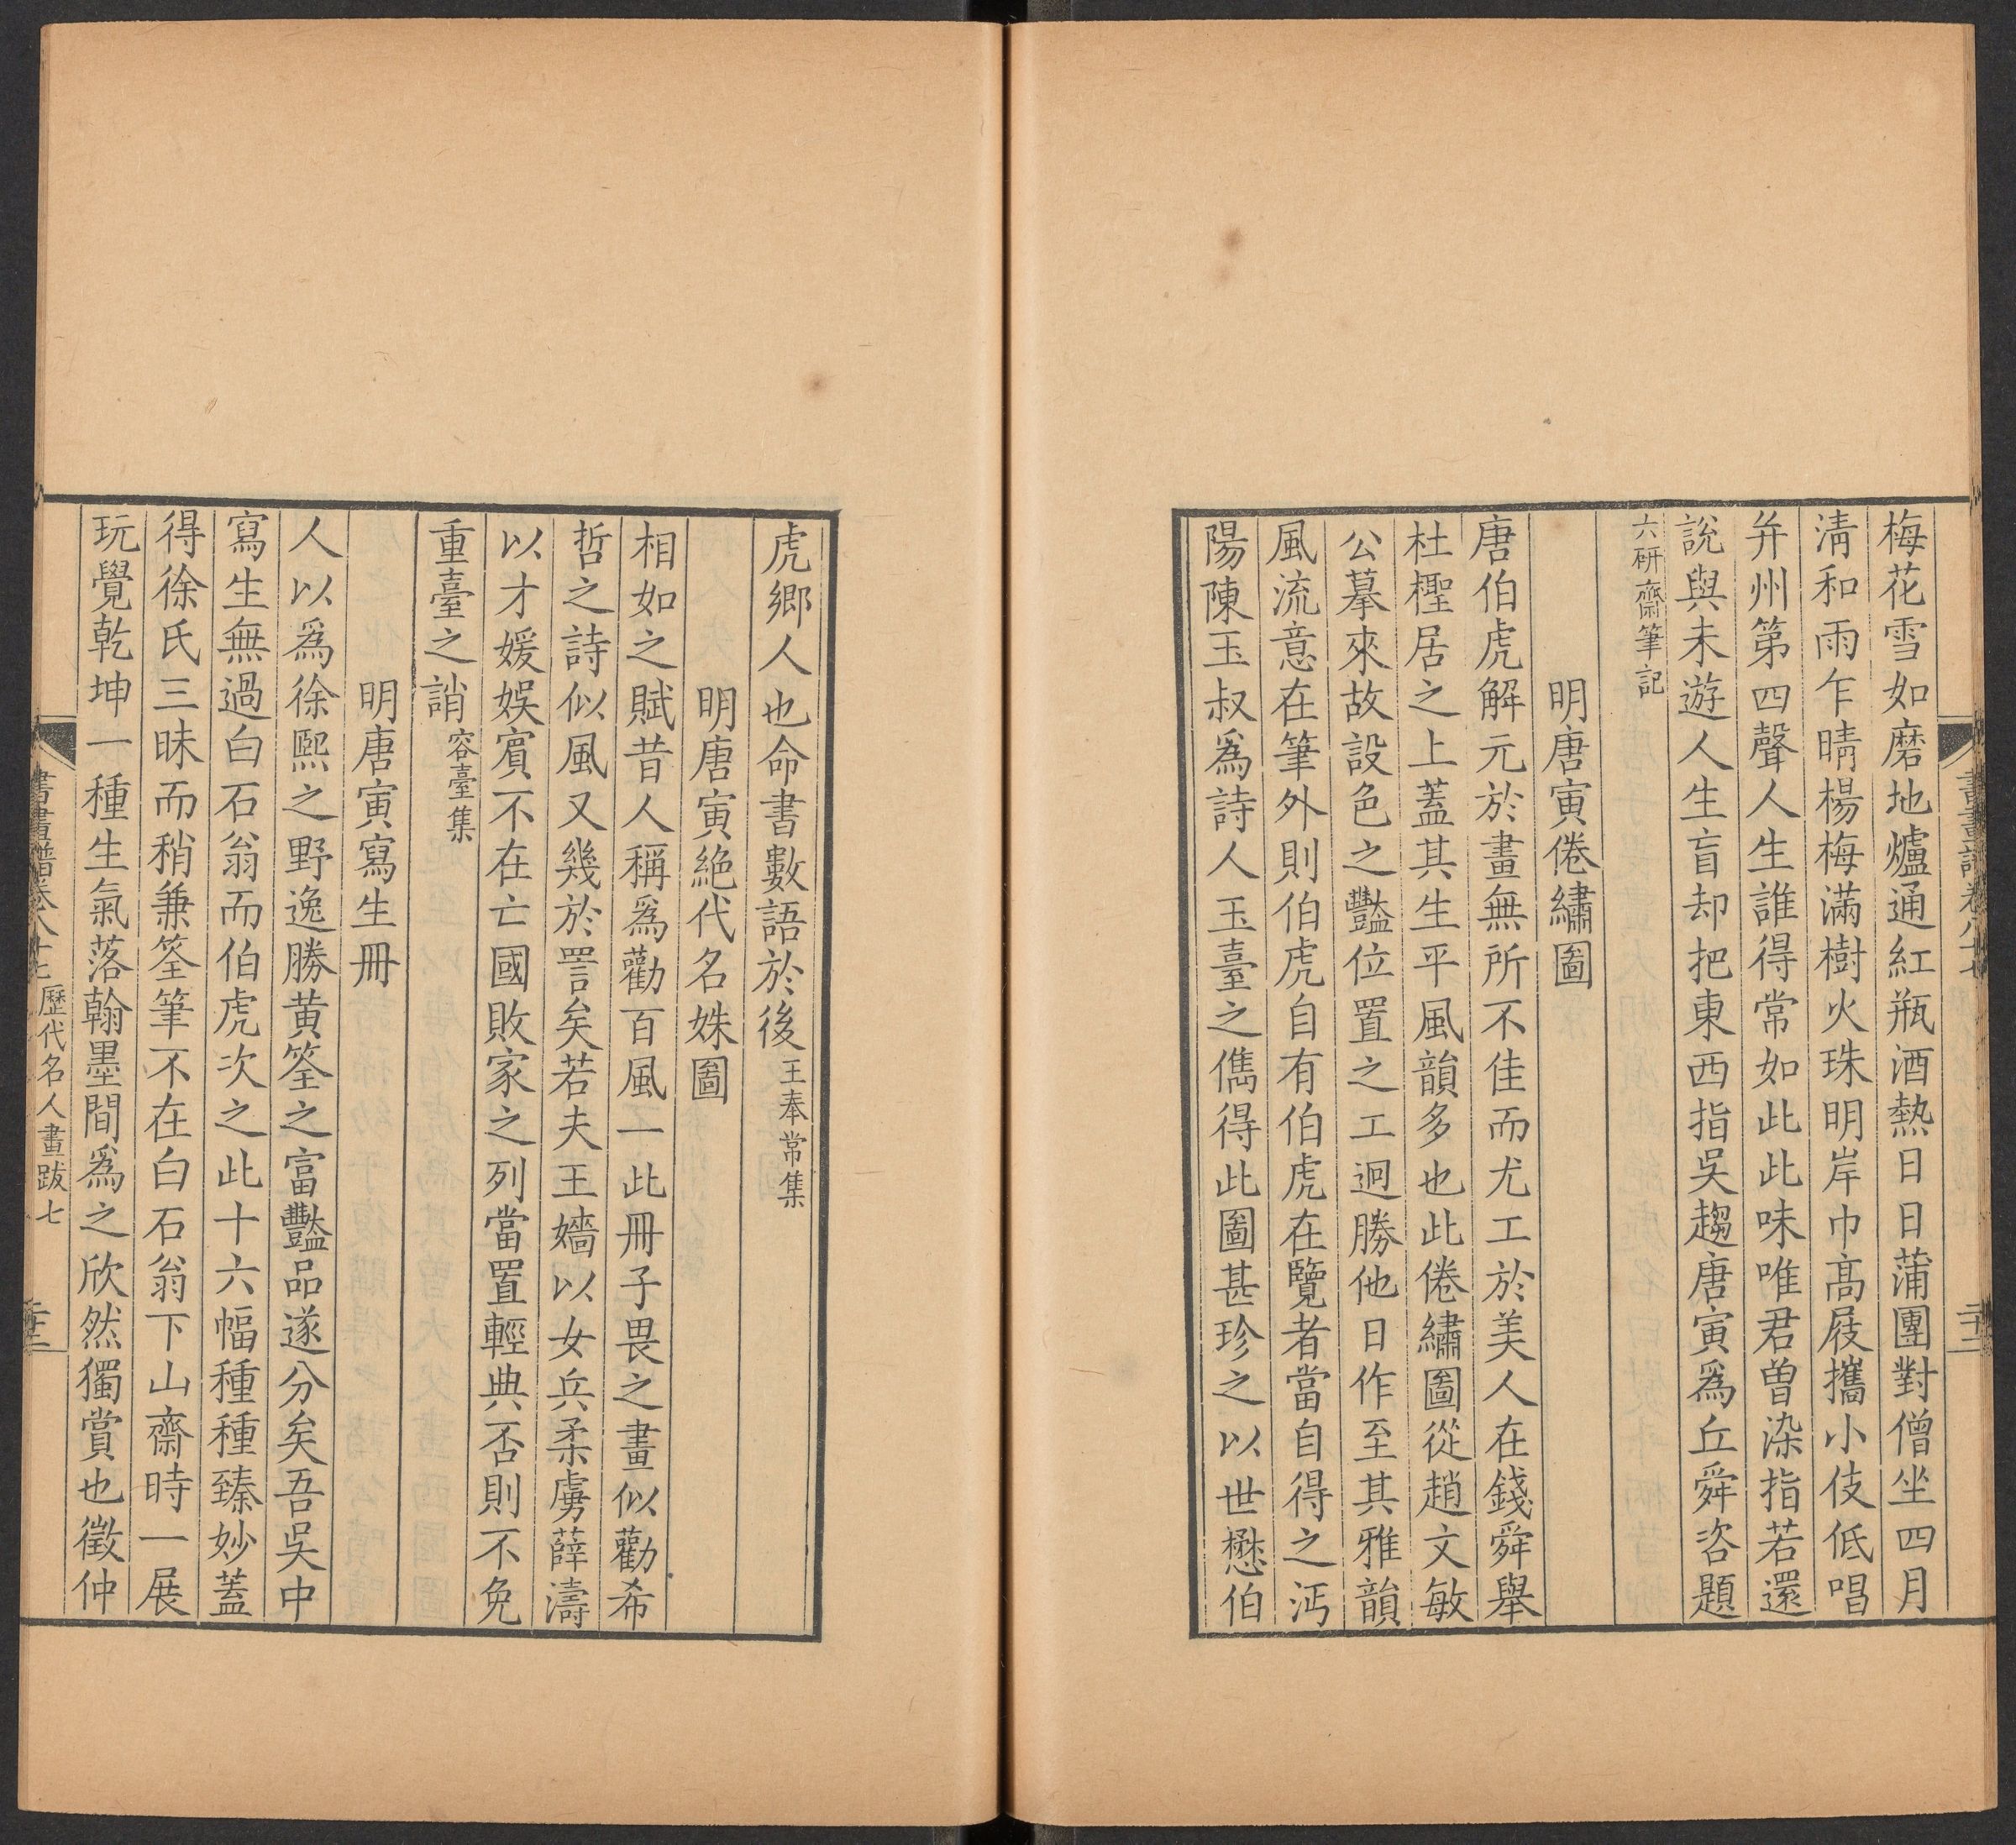 梅花雪如磨地爐通紅瓶酒熱日日蒲團對僧坐四月
淸和雨乍晴楊梅滿樹火珠明岸巾髙屐攜小伎低唱
幷州第四聲人生誰得常如此此味唯君曾染指若還
說與未遊人生盲却把東西指吳趨唐寅爲丘舜咨題
六硏齋筆記
明唐寅倦繡圖
唐伯虎解元於畫無所不佳而尤工於美人在錢舜舉
杜檉居之上蓋其生平風韻多也此倦繡圖從趙文敏
公摹來故設色之豔位置之工迥勝他日作至其雅韻
風流意在筆外則伯虎自有伯虎在覽者當自得之沔
陽陳玉叔爲詩人玉臺之儁得此圖甚珍之以世懋伯
虎鄉人也命書數語於後王奉常集
明唐寅絕代名姝圖
相如之賦昔人稱爲勸百風一此冊子畏之畫似勸希
哲之詩似風又幾於詈矣若夫王嬙以女兵柔虜薛濤
以才媛娛賓不在亡國敗家之列當置輕典否則不免
重臺之誚容臺集
明唐寅寫生冊
人以爲徐熙之野逸勝黄筌之富豔品遂分矣吾吳中
寫生無過白石翁而伯虎次之此十六幅種種臻妙蓋
得徐氏三昧而稍兼筌筆不在白石翁下山齋時一展
玩覺乾坤一種生氣落翰墨間爲之欣然獨賞也徵仲
書畫譜卷八十七 歷代名人畫跋七